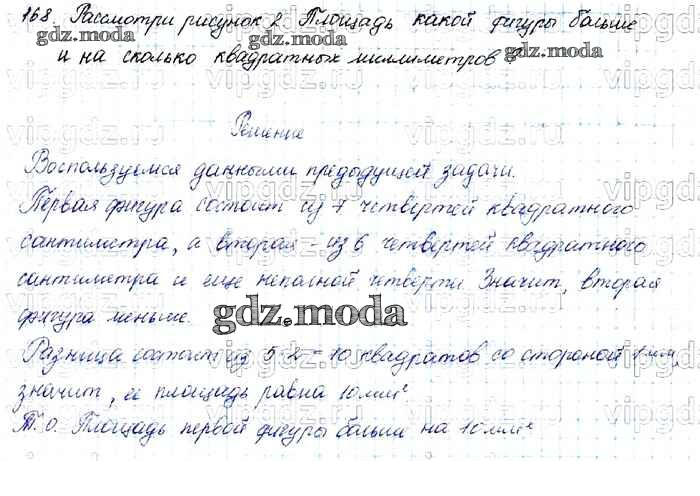 168. Рассмотри рисунок 2. Площадь какой фигуры больше
и на сколько квадратных миллиметров?
gdz.moda
gdz.moda
vipgdz.ru
Решение
Воспользуемся данными предыдущей задачи.
Первая фигура состоит из 7 четвертей квадратного
сантиметра, а вторая - из 6 четвертей квадратного
сантиметра и еще неполной четверти. Значит, вторая
фигура меньше.
gdz.moda
Разница состоит из 5·2 = 10 квадратов со стороной 1 мм,
значит, ее площадь равна 10 мм²
Т.о. Площадь первой фигуры больше на 10 мм²